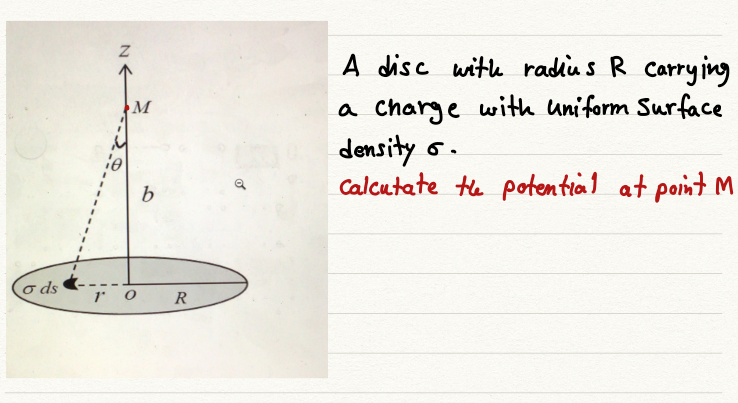 Z
M
θ
b
σ ds
r
o
R
A disc with radius R carrying
a charge with uniform surface
density σ.
calculate the potential at point M